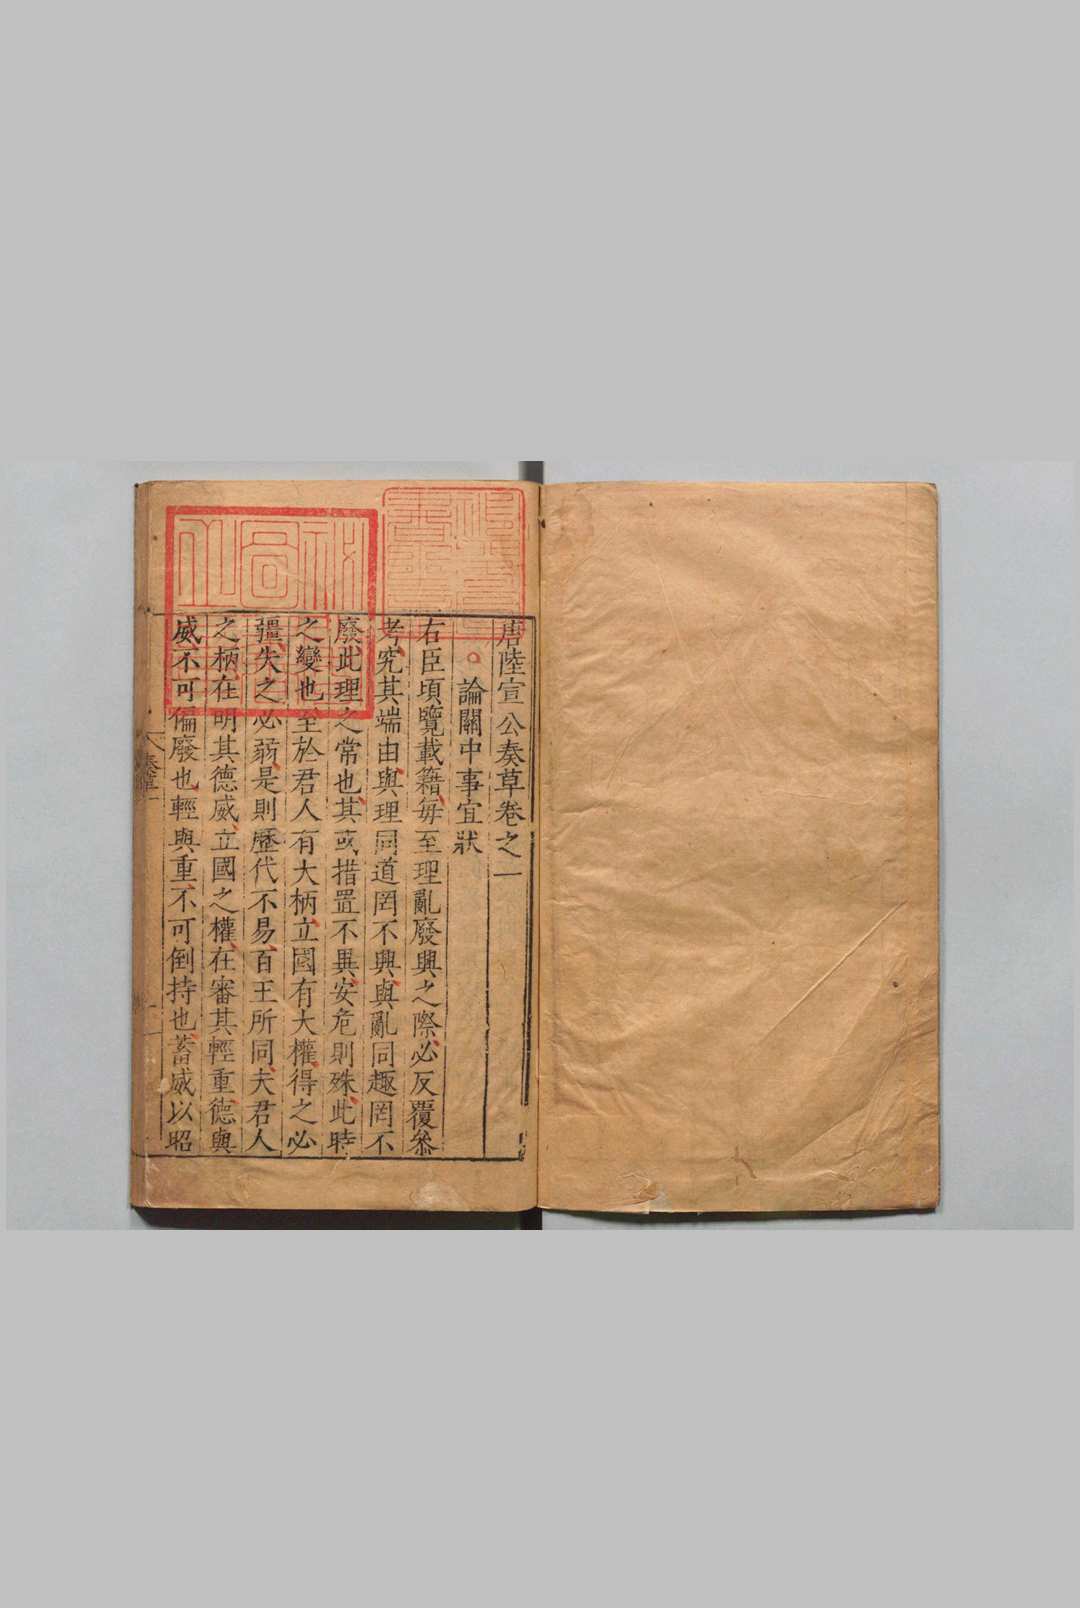 唐陸宣公奏草卷之一
論關中事宜狀
右臣頃覽載籍每至理亂廢興之際必反覆參
考究其端由與理同道罔不興與亂同趣罔不
廢此理之常也其或措置不異安危則殊此時
之變也至於君人有大柄立國有大權得之必
彊失之必弱是則歷代不易百王所同夫君人
之柄在明其德威立國之權在審其輕重德與
威不可偏廢也輕與重不可倒持也蓄威以昭
奏草一